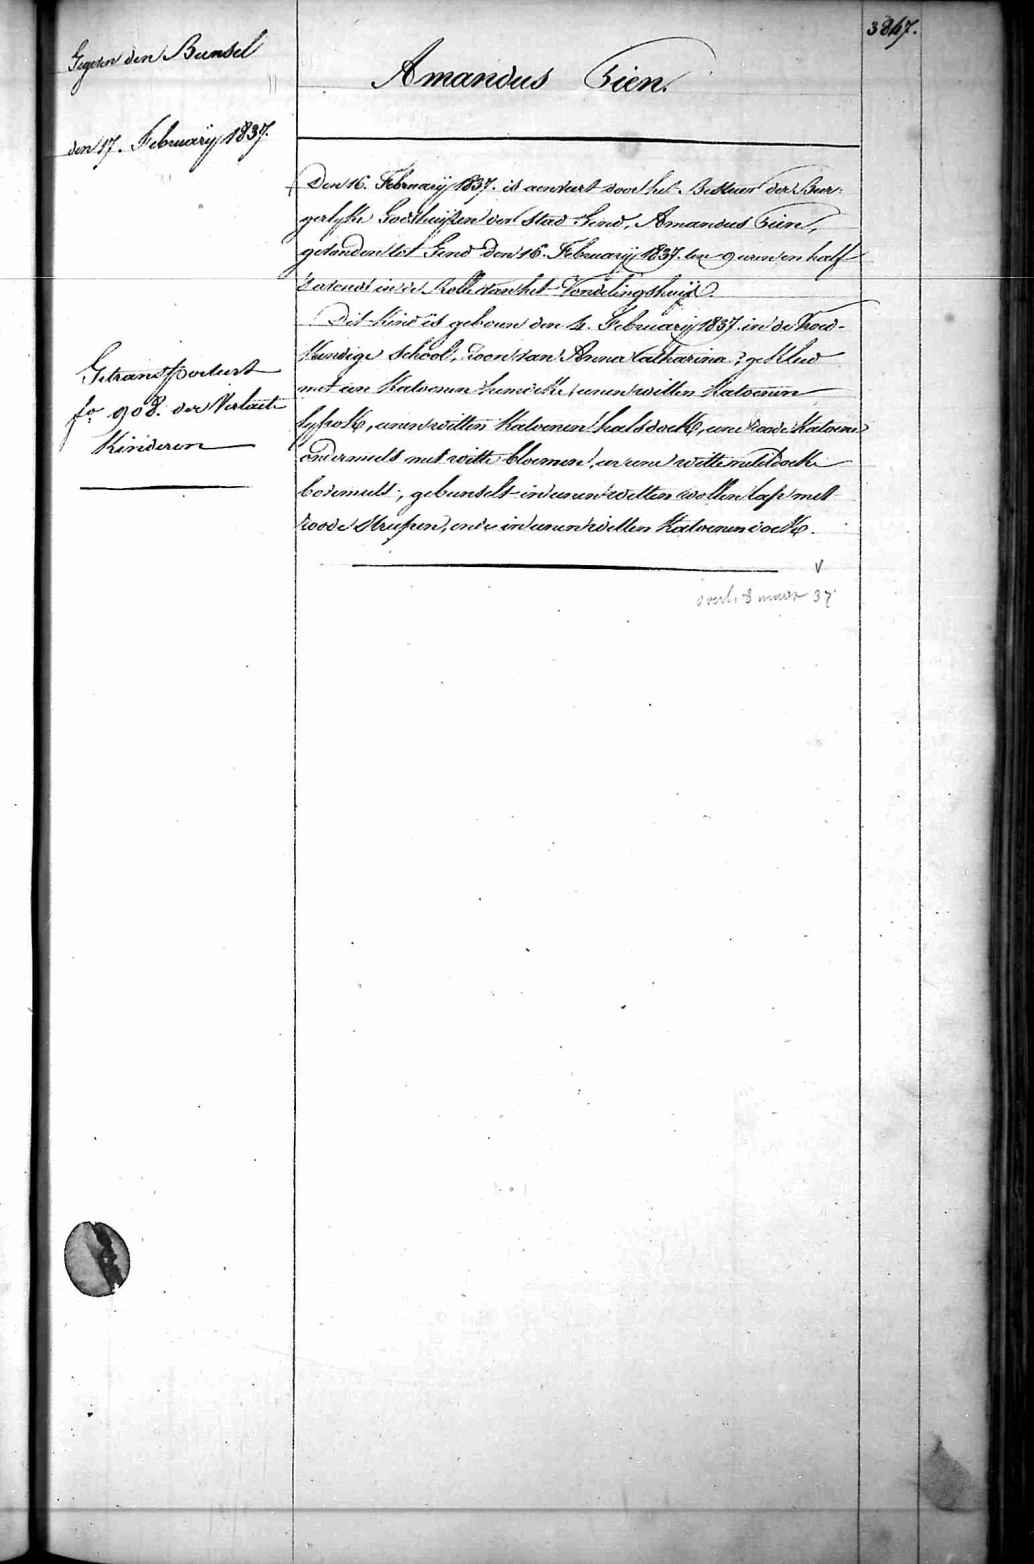 3847.
Gegeven den Bunsel
den 17. February 1837.
Amandus Tien.
Den 16. February 1837. is aenveert door het Bestuer der Bur-
gerlyke Godshuijsen der Stad Gend, Amandus Tien,
gevonden tot Gend den 16. February 1837. ten 9 uren en half
's avends in de Rolle van het Vondelingshuijs.
Dit kind is geboren den 4. February 1837. in de Vroed-
kundige School, Zoon van Anna Catharina ? gekleed
met een katoenen hemdeke, eenen witten katoenen
lyfrok, eenen witten katoenen halsdoek, eene roode katoene
ondermuts met witte bloemen, en eene witte neteldoeke
bovemuts, gebunselt in eenen witten wollen lap met
roode strepen, ende in eenen witten katoenen doek.
Getransporteert
fo 908. der Verlaete
Kinderen
overl. 8 maar 37